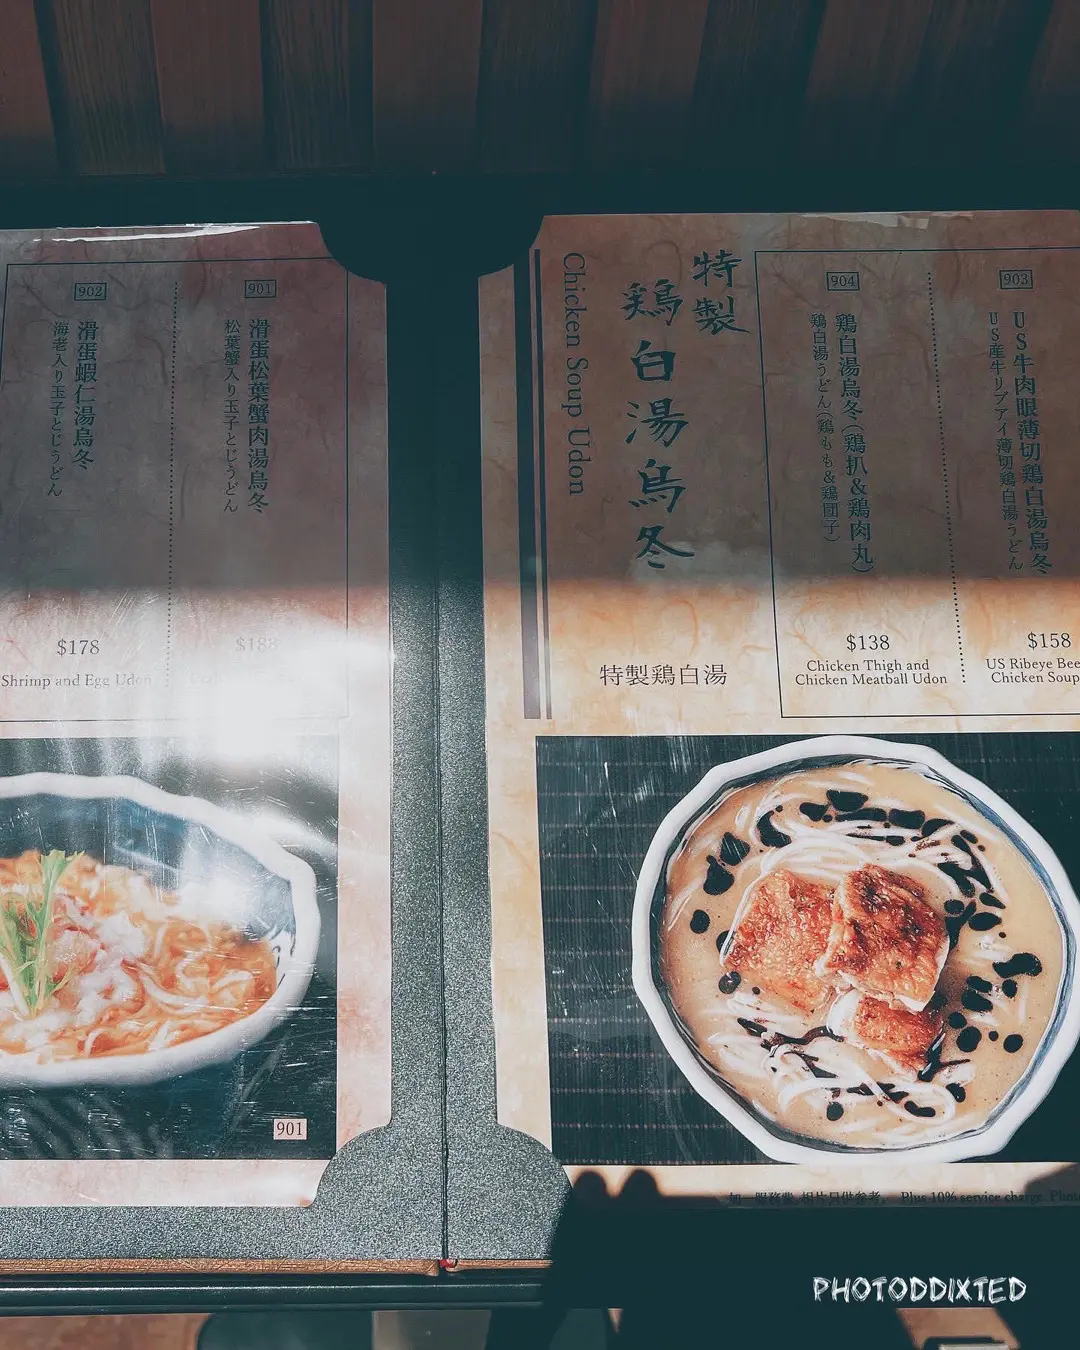 特製
鶏白湯烏冬
Chicken Soup Udon
特製鶏白湯
903
US牛肉眼薄切鶏白湯烏冬
US産牛リブアイ薄切鶏白湯うどん
$158
US Ribeye Bee
Chicken Soup
904
鶏白湯烏冬(鶏扒&鶏肉丸)
鶏白湯うどん(鶏もも&鶏団子)
$138
Chicken Thigh and
Chicken Meatball Udon
加一服務費，相片只供参考。 Plus 10% service charge. Photo
901
滑蛋松葉蟹肉湯烏冬
松葉蟹入り玉子とじうどん
$188
902
滑蛋蝦仁湯烏冬
海老入り玉子とじうどん
$178
Shrimp and Egg Udon
901
PHOTODDIXTED